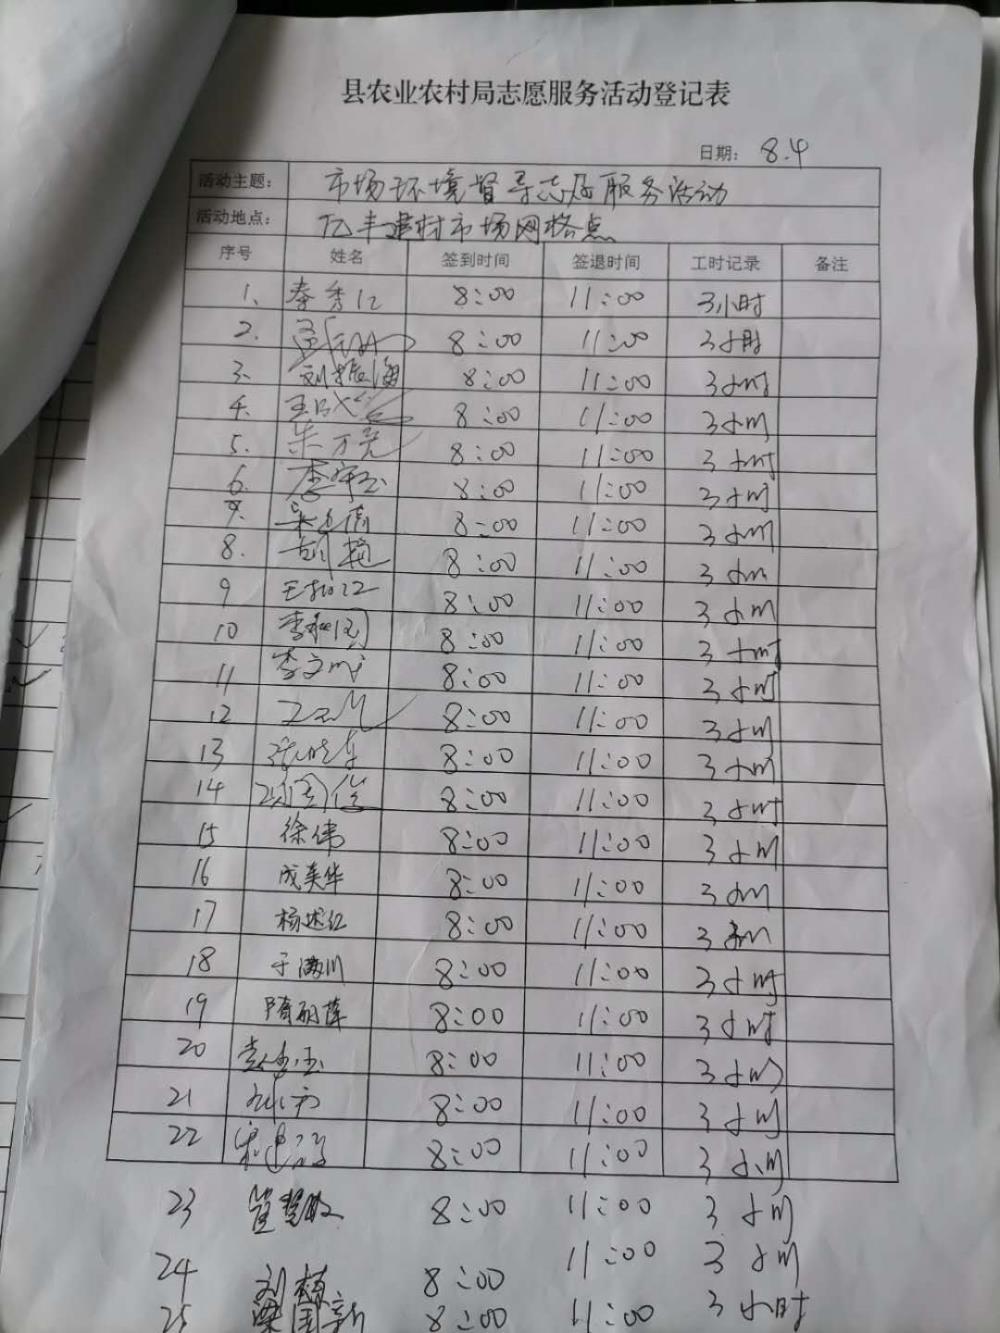 县农业农村局志愿服务活动登记表
日期： 8.4
活动主题： 市场环境督导志愿服务活动
活动地点： 亿丰建材市场网格点
序号 姓名 签到时间 签退时间 工时记录 备注
1、 秦秀江 8:00 11:00 3小时
2. 8:00 11:00 3小时
3. 刘振海 8:00 11:00 3小时
4. 8:00 11:00 3小时
5. 朱万亮 8:00 11:00 3小时
6. 8:00 11:00 3小时
7. 8:00 11:00 3小时
8. 胡艳 8:00 11:00 3小时
9 8:00 11:00 3小时
10 8:00 11:00 3小时
11 李文 8:00 11:00 3小时
12 8:00 11:00 3小时
13 张晓东 8:00 11:00 3小时
14 国俊 8:00 11:00 3小时
15 徐伟 8:00 11:00 3小时
16 成英华 8:00 11:00 3小时
17 杨述红 8:00 11:00 3小时
18 于满川 8:00 11:00 3小时
19 隋丽萍 8:00 11:00 3小时
20 8:00 11:00 3小时
21 8:00 11:00 3小时
22 宋建 8:00 11:00 3小时
23 8:00 11:00 3小时
24 刘 8:00 11:00 3小时
25 梁国新 8:00 11:00 3小时